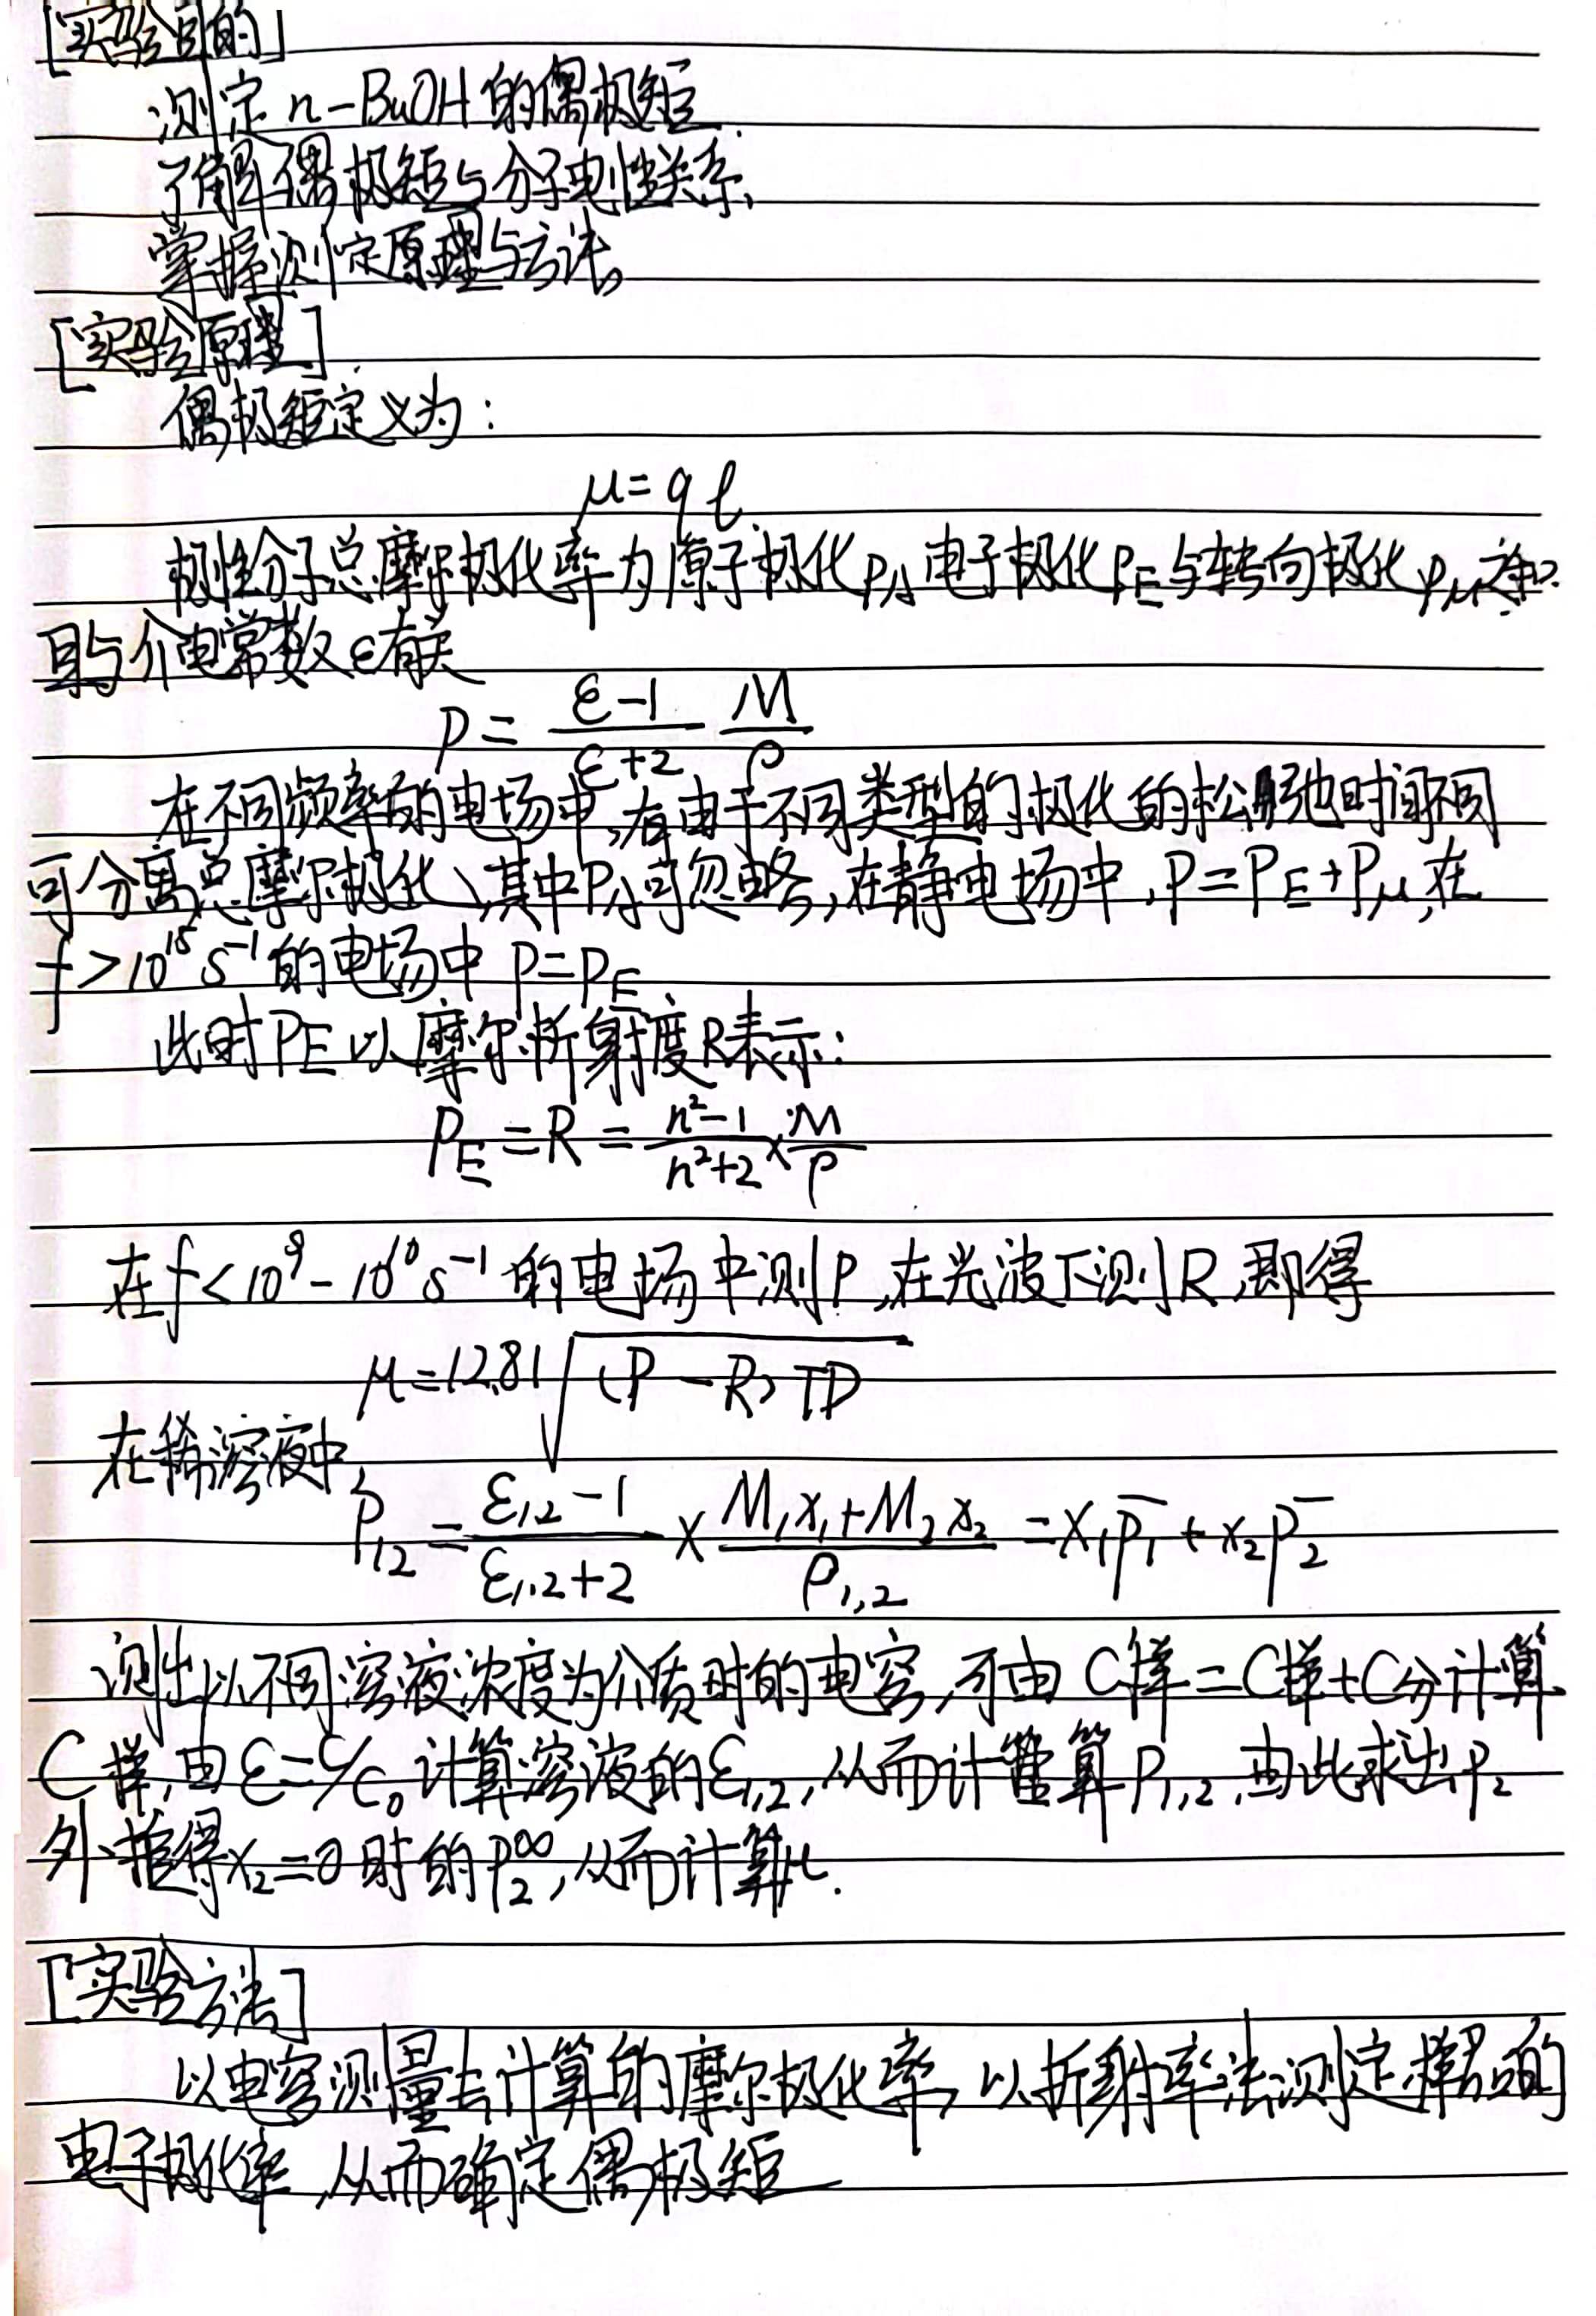 [实验目的]
测定n-BuOH的偶极矩.
了解偶极矩与分子电性关系,
掌握测定原理与方法。
[实验原理]
偶极矩定义为:
μ=ql.
极性分子总摩尔极化率为原子极化P_A电子极化P_E与转向极化P_μ之和.
且与介电常数ε有关
P = \frac{ε-1}{ε+2} \frac{M}{ρ}
在不同频率的电场中,由于不同类型的极化的松弛时间不同
可分离总摩尔极化,其中P_A可忽略,在静电场中,P=P_E+P_μ,在
f>10^{15}s^{-1}的电场中P=P_E
此时PE以摩尔折射度R表示:
P_E=R=\frac{n^2-1}{n^2+2}×\frac{M}{ρ}
在f<10^9-10^{10}s^{-1}的电场中测P,在光波下测R,即得
μ=12.81\sqrt{(P-R)T}D
在稀溶液中,
P_{12}=\frac{ε_{1,2}-1}{ε_{1,2}+2}×\frac{M_1x_1+M_2x_2}{ρ_{1,2}}=x_1\bar{P_1}+x_2\bar{P_2}
测出以不同溶液浓度为介质时的电容,可由C样=C样+C分计算
C样,由ε=C/C_0计算溶液的ε_{1,2},从而计算P_{1,2},由此求出P_2
外推得x_2=0时的P_2^∞,从而计算μ.
[实验方法]
以电容测量去计算的摩尔极化率,以折射率法测定样品的
电子极化率,从而确定偶极矩